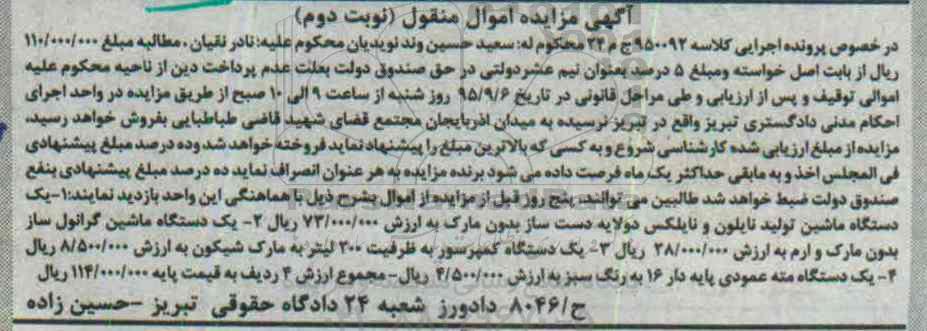 آگهی مزایده اموال منقول (نوبت دوم)
در خصوص پرونده اجرایی کلاسه ۹۵۰۰۹۲ ج م ۲۴ محکوم له: سعید حسین وند نویدیان محکوم علیه: نادر نقیان، مطالبه مبلغ ۱۱۰/۰۰۰/۰۰۰
ریال از بابت اصل خواسته ومبلغ ۵ درصد بعنوان نیم عشردولتی در حق صندوق دولت بعلت عدم پرداخت دین از ناحیه محکوم علیه
اموالی توقیف و پس از ارزیابی و طی مراحل قانونی در تاریخ ۹۵/۹/۶ روز شنبه از ساعت ۹ الی ۱۰ صبح از طریق مزایده در واحد اجرای
احکام مدنی دادگستری تبریز واقع در تبریز نرسیده به میدان اذربایجان مجتمع قضای شهید قاضی طباطبایی بفروش خواهد رسید،
مزایده از مبلغ ارزیابی شده کارشناسی شروع و به کسی که بالاترین مبلغ را پیشنهاد نماید فروخته خواهد شد وده درصد مبلغ پیشنهادی
فی المجلس اخذ و به مابقی حداکثر یک ماه فرصت داده می شود برنده مزایده به هر عنوان انصراف نماید ده درصد مبلغ پیشنهادی بنفع
صندوق دولت ضبط خواهد شد طالبین می توانند، پنج روز قبل از مزایده از اموال بشرح ذیل با هماهنگی این واحد بازدید نمایند:۱-یک
دستگاه ماشین تولید نایلون و نایلکس دولایه دست ساز بدون مارک به ارزش ۷۳/۰۰۰/۰۰۰ ریال ۲- یک دستگاه ماشین گرانول ساز
بدون مارک و ارم به ارزش ۲۸/۰۰۰/۰۰۰ ریال ۳- یک دستگاه کمپرسور به ظرفیت ۳۰۰ لیتر به مارک شیکون به ارزش ۸/۵۰۰/۰۰۰ ریال
۴- یک دستگاه مته عمودی پایه دار ۱۶ به رنگ سبز به ارزش ۴/۵۰۰/۰۰۰ ریال- مجموع ارزش ۴ ردیف به قیمت پایه ۱۱۴/۰۰۰/۰۰۰ ریال
ح/۸۰۴۶ دادورز شعبه ۲۴ دادگاه حقوقی تبریز -حسین زاده